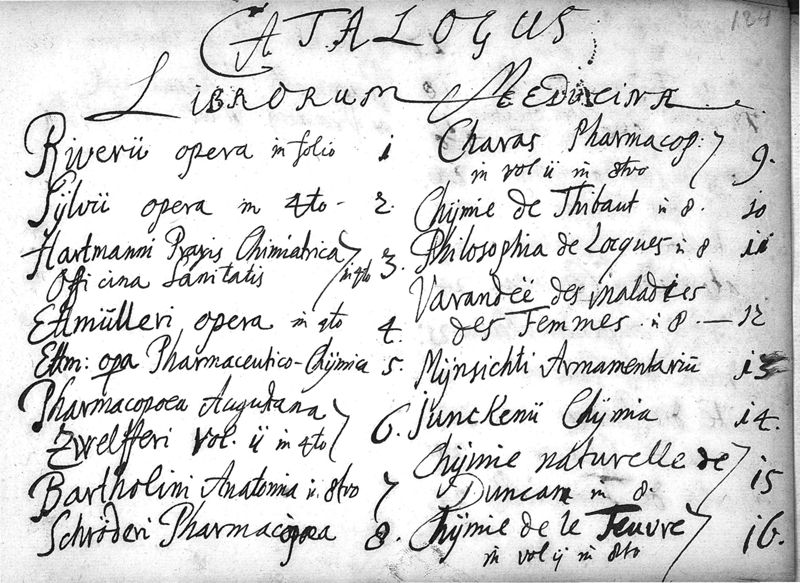 124
CATALOGUS
LIBRORUM MEDICINA
Riverii opera in folio 1
Sÿlvii opera in 4to - 2.
Hartmanni Praxis Chimiatrica
Officina Sanitatis in 4to 3.
Ettmülleri opera in 4to 4.
Ettm: opa Pharmaceutico-Chÿmica 5.
Pharmacopoea Augustana
Zwelfferi vol. ii in 4to 6.
Bartholini Anatomia in 8tvo 7
Schröderi Pharmacopoea 8.
Charas Pharmacop:
in vol ii in 8tvo 9.
Chÿmie de Thibaut in 8. 10
Philosophia de Locques in 8 11
Varandëë des maladies
des Femmes in 8. — 12
Mÿnsichti Armamentariū 13
Junckenii Chÿmia 14.
Chÿmie naturelle de
Duncan in 8 15
Chÿmie de le Feuvre
in vol ij in 8to 16.